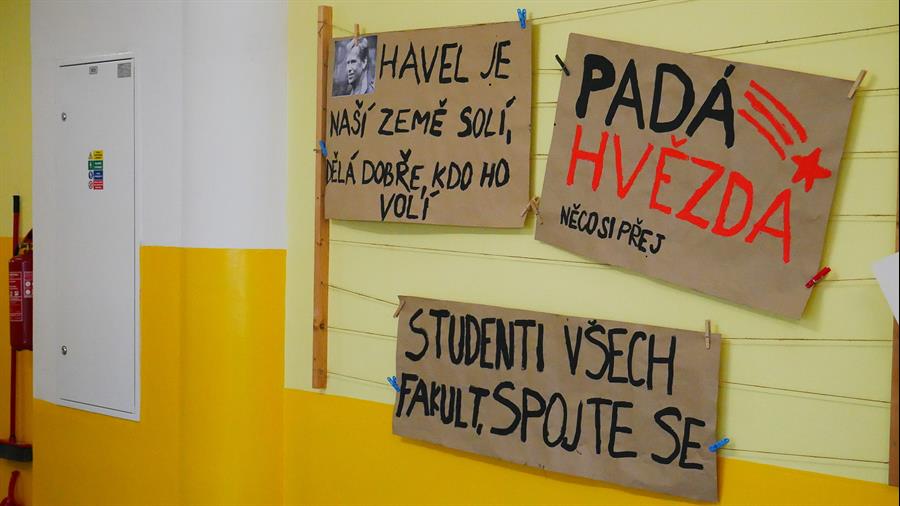 HAVEL JE
NAŠÍ ZEMĚ SOLÍ,
DĚLÁ DOBŘE, KDO HO
VOLÍ
PADÁ
HVĚZDA
NĚCO SI PŘEJ
STUDENTI VŠECH
FAKULT, SPOJTE SE